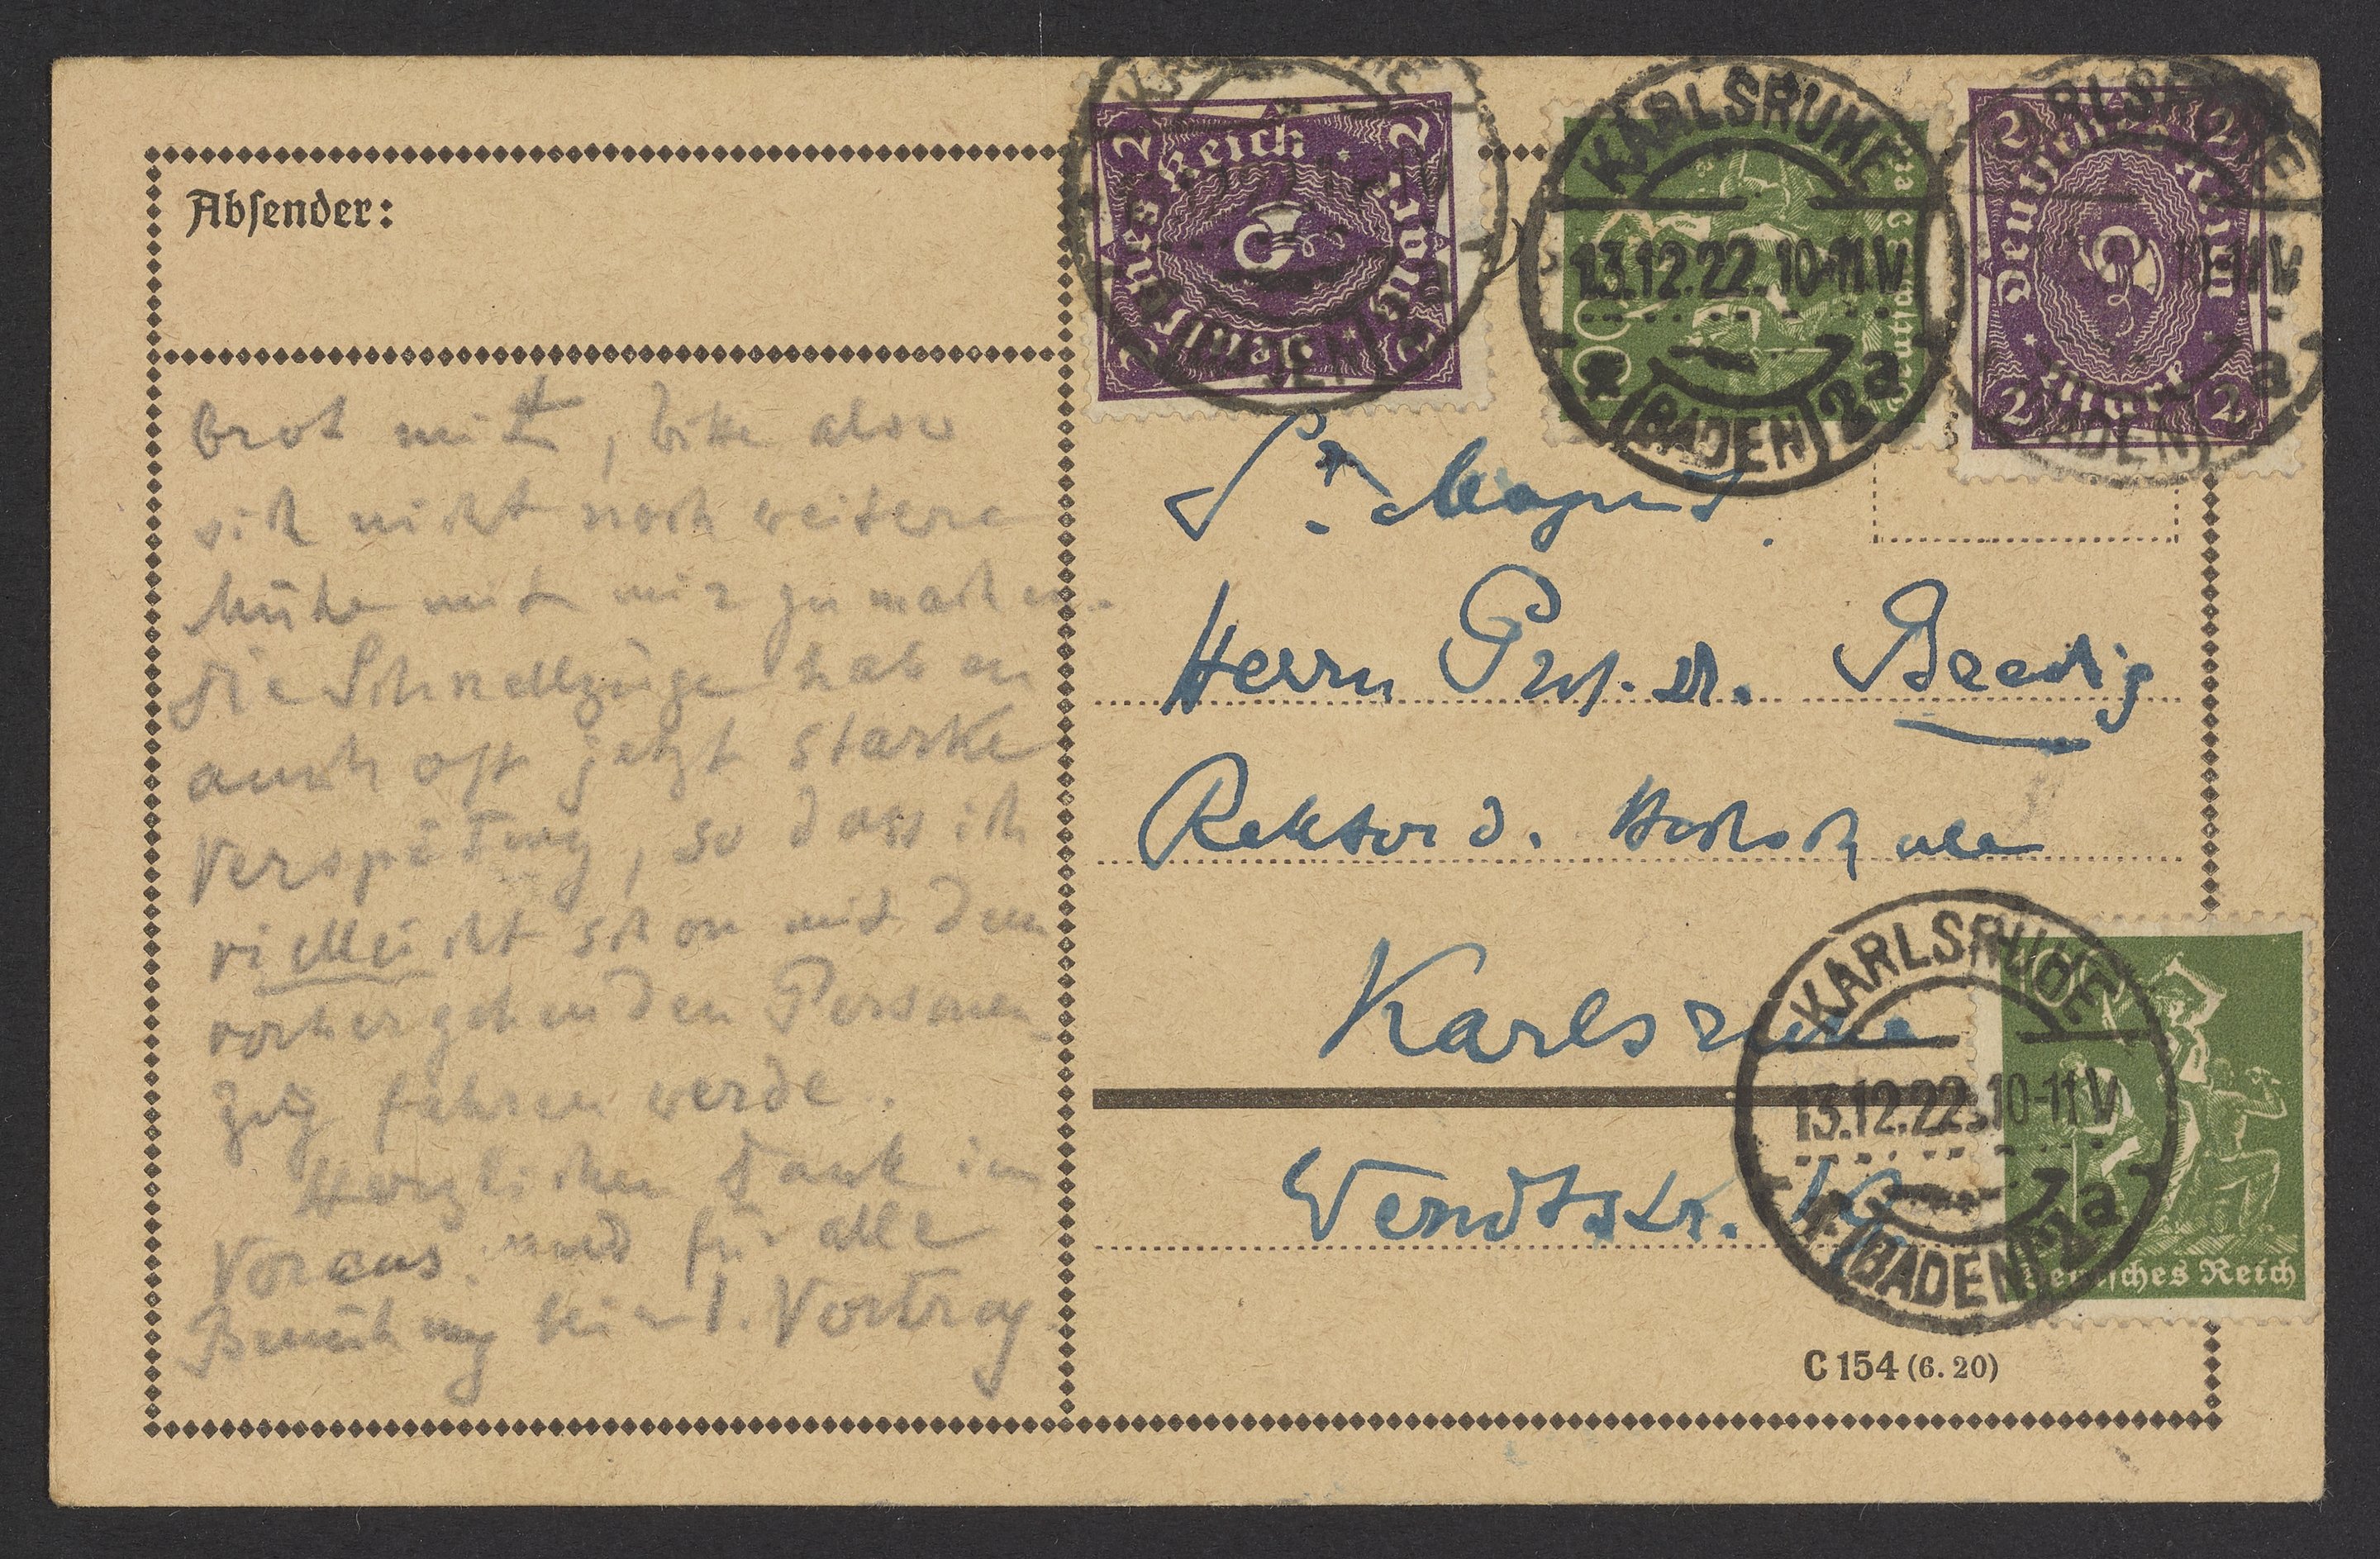 Absender:
brot mit, bitte also
sich nicht noch weitere
Mühe mit mir zu machen.
Die Schnellzüge haben
auch oft jetzt starke
Verspätung, so dass ich
vielleicht schon mit dem
vorhergehenden Personen-
zug fahren werde.
Herzlichen Dank im
Voraus und für alle
Bemühung beim 1. Vortrag.
2 Deutsches Reich 2
2 2
KARLSRUHE
13.12.22. 10-11 V
* (BADEN) 2a
Deutsches Reich
KARLSRUHE
2 Deutsches Reich 2
2 2
11 V
(BADEN) 2a
Sr. Magnif.
Herrn Prof. Dr. Bredig
Rektor d. Hochschule
Karlsruhe
Wendtstr.
KARLSRUHE
13.12.22. 10-11 V
* (BADEN) 2a
Deutsches Reich
C 154 (6. 20)